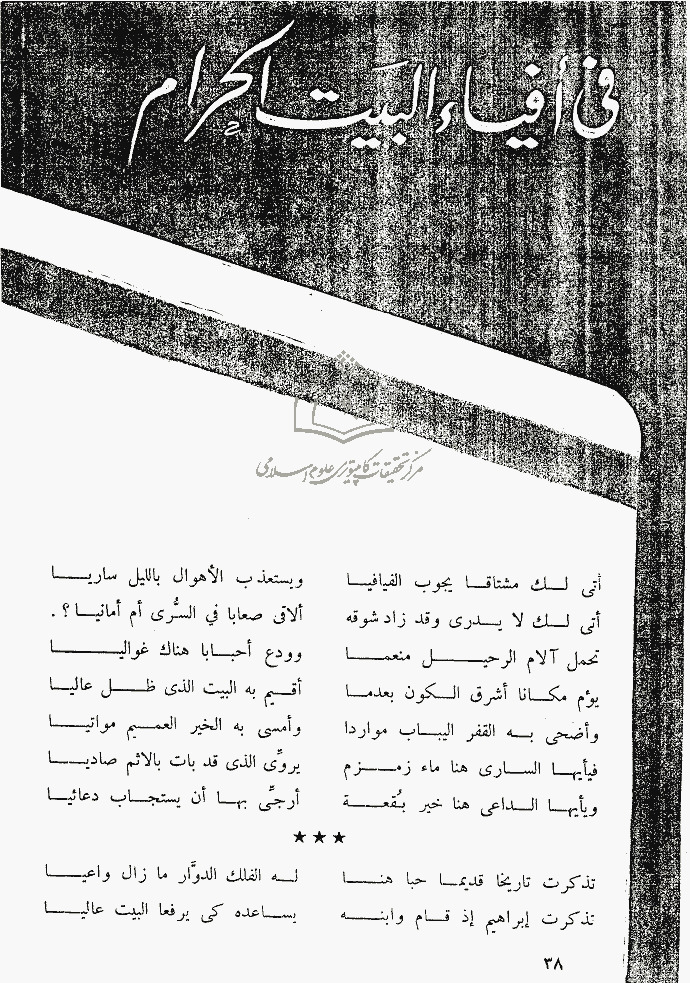 في أفياء البيت الحرام
مركز تحقيقات كامپيوتری علوم اسلامی
أتى لك مشتاقا يجوب الفيافيا ويستعذب الأهوال بالليل ساريا
أتى لك لا يدرى وقد زاد شوقه ألاقى صعابا في السُّرى أم أمانيا ؟ .
تحمل آلام الرحيل منعما وودع أحبابا هناك غواليا
يؤم مكانا أشرق الكون بعدما أقيم به البيت الذى ظل عاليا
وأضحى به القفر اليباب مواردا وأمسى به الخير العميم مواتيا
فيأيها السارى هنا ماء زمزم يروِّى الذى قد بات بالاثم صاديا
ويأيها الداعى هنا خير بُقعة أرجِّى بها أن يستجاب دعائيا
★★★
تذكرت تاريخا قديما حبا هنا له الفلك الدوَّار ما زال واعيا
تذكرت إبراهيم إذ قام وابنه يساعده كى يرفعا البيت عاليا
٣٨